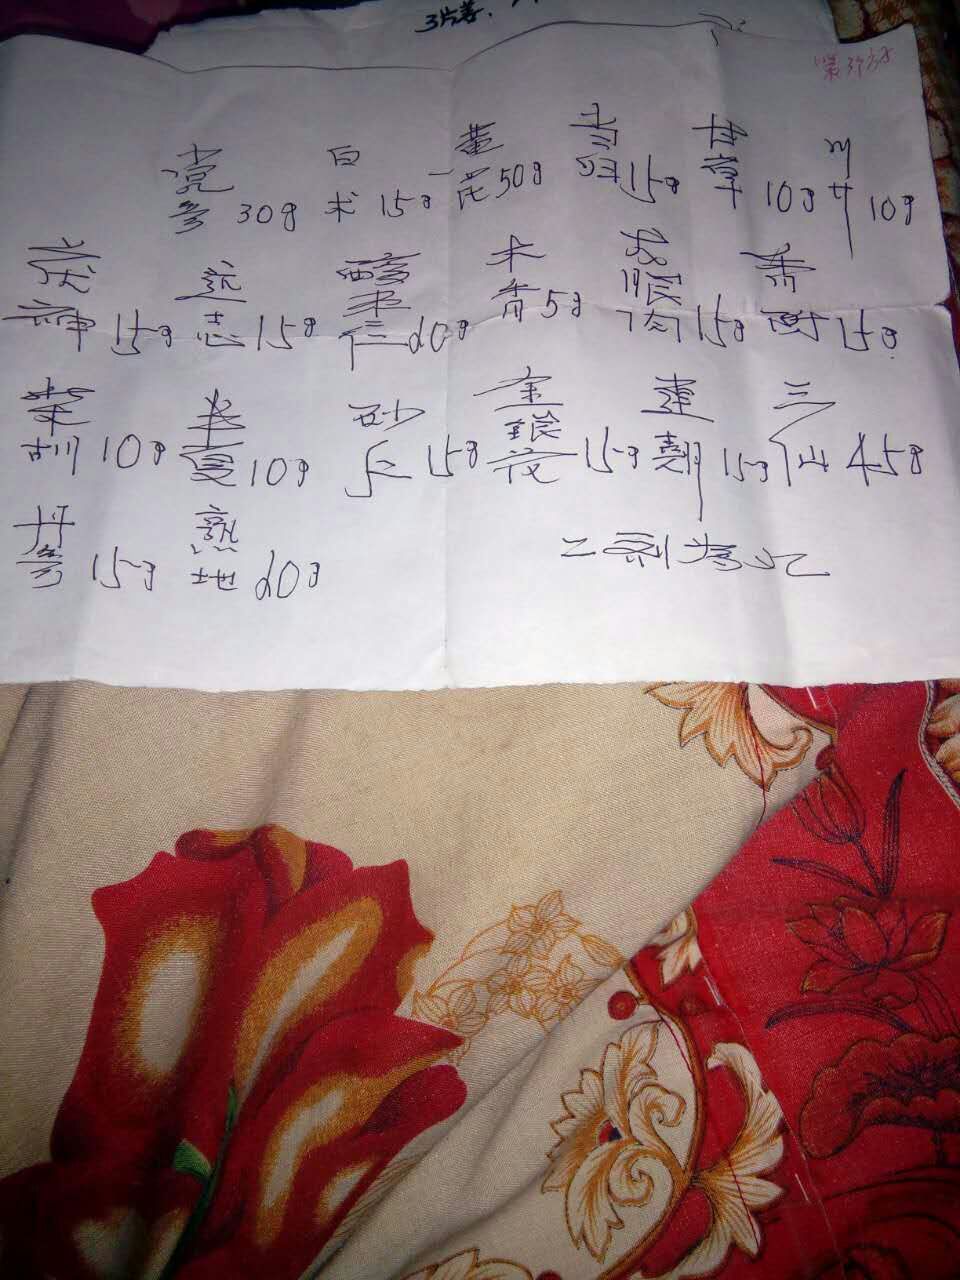 3片姜
第3付方
党参 30g 白术 15g 黄芪 50g 当归 15g 甘草 10g 川芎 10g
茯神 15g 远志 15g 醋枣仁 20g 木香 5g 龙眼肉 15g 香附 15g
柴胡 10g 半夏 10g 砂仁 15g 金银花 15g 连翘 15g 三仙 45g
丹参 15g 熟地 20g
二剂